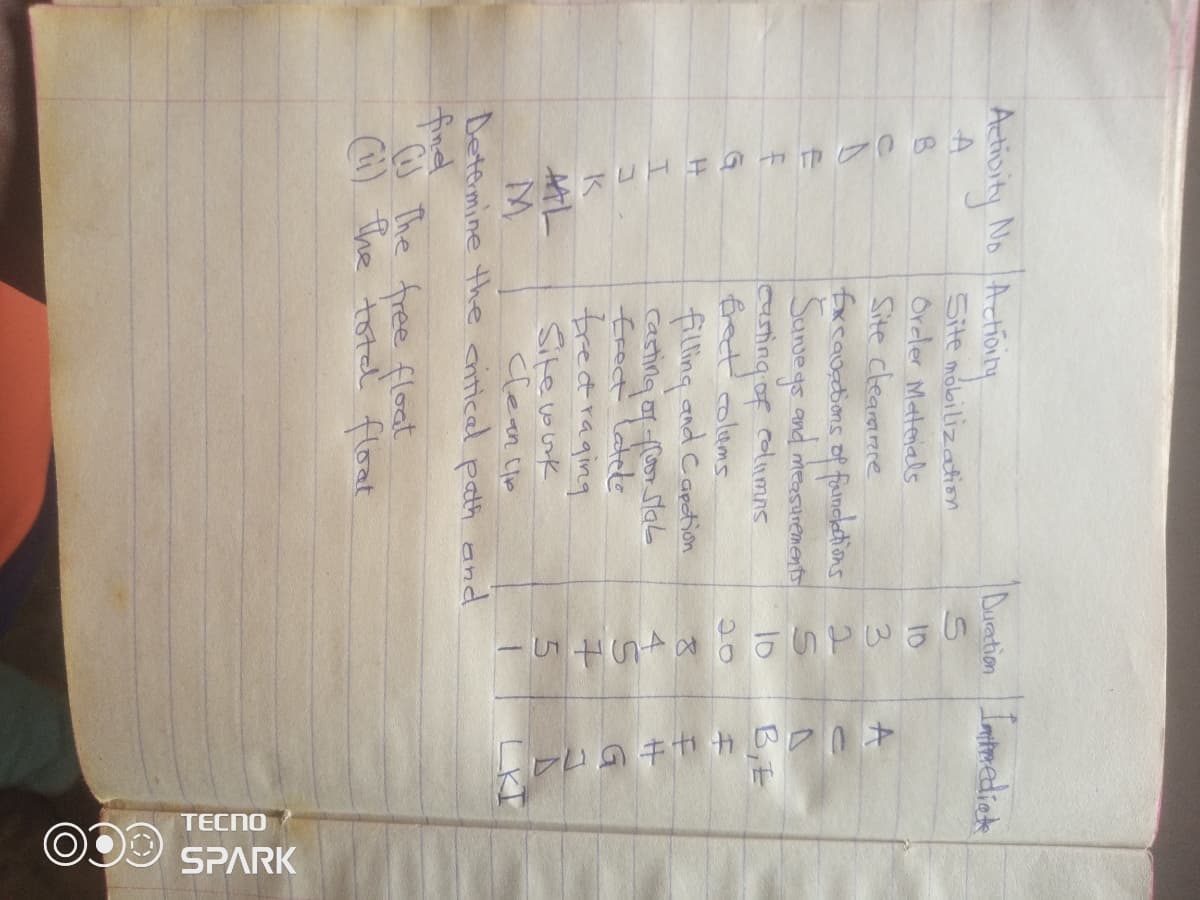 Activity No Activity Duration Immediate
A Site mobilization 5
B Order Materials 10
C Site clearance 3 A
D Excavations of foundations 2 C
E Surveys and measurements 5 D
F casting of columns 10 B, E
G Erect colums 20 F
H filling and 8 F
I casting of floor slab 4 H
J Erect 5 G
K Erect raging 7 J
L Site work 5 D
M Clean up 1 LKI
Determine the critical path and
find
(i) The free float
(ii) The total float
TECNO
SPARK